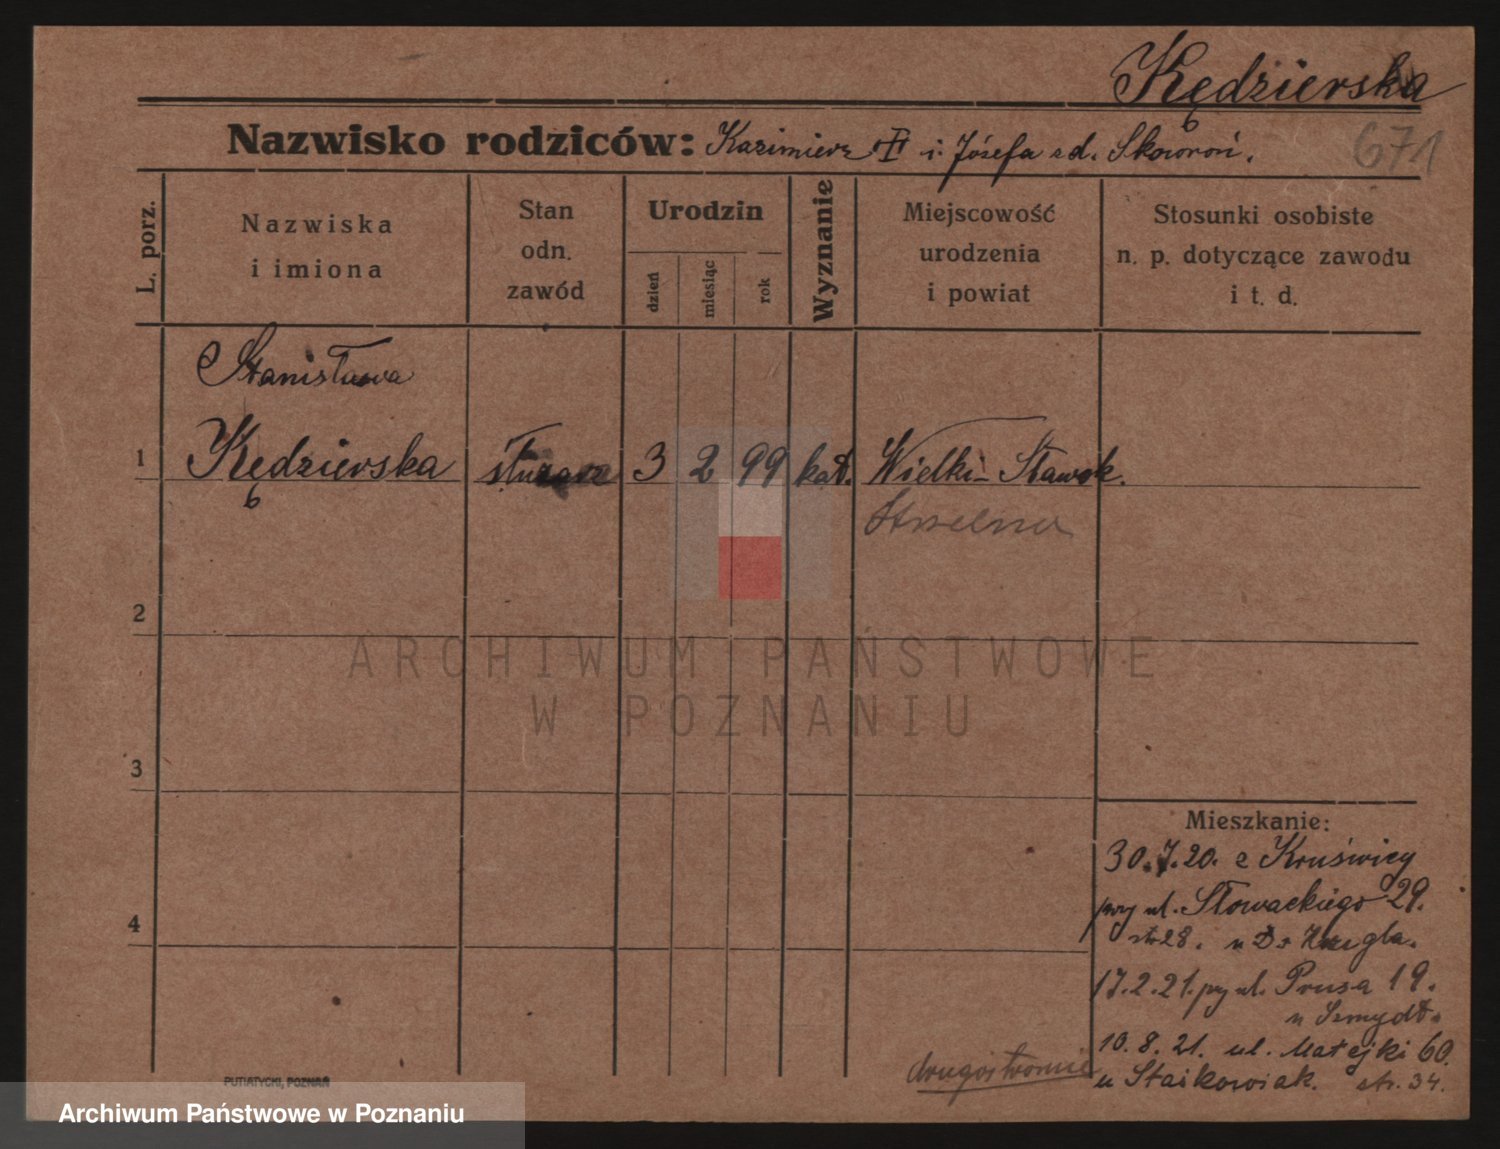 Kędzierska
Nazwisko rodziców: Kazimierz i Józefa zd. Skowroń.
671
L. porz.
Nazwiska
i imiona
Stan
odn.
zawód
Urodzin
dzień
miesiąc
rok
Wyznanie
Miejscowość
urodzenia
i powiat
Stosunki osobiste
n. p. dotyczące zawodu
i t. d.
Stanisława
1 Kędzierska 3 2 99 kat. Wielki-Sławsk.
Strzelno
2
ARCHIWUM PAŃSTWOWE
W POZNANIU
3
4
Mieszkanie:
30.7.20. z Kruświcy
przy ul. Słowackiego 29.
str 28. u Dr
17.2.21. przy ul. Prusa 19.
u Szmydt.
10.8.21. ul. Matejki 60.
u Staikowiak. str. 34.
drugostronnie
PUTIATYCKI, POZNAŃ
Archiwum Państwowe w Poznaniu